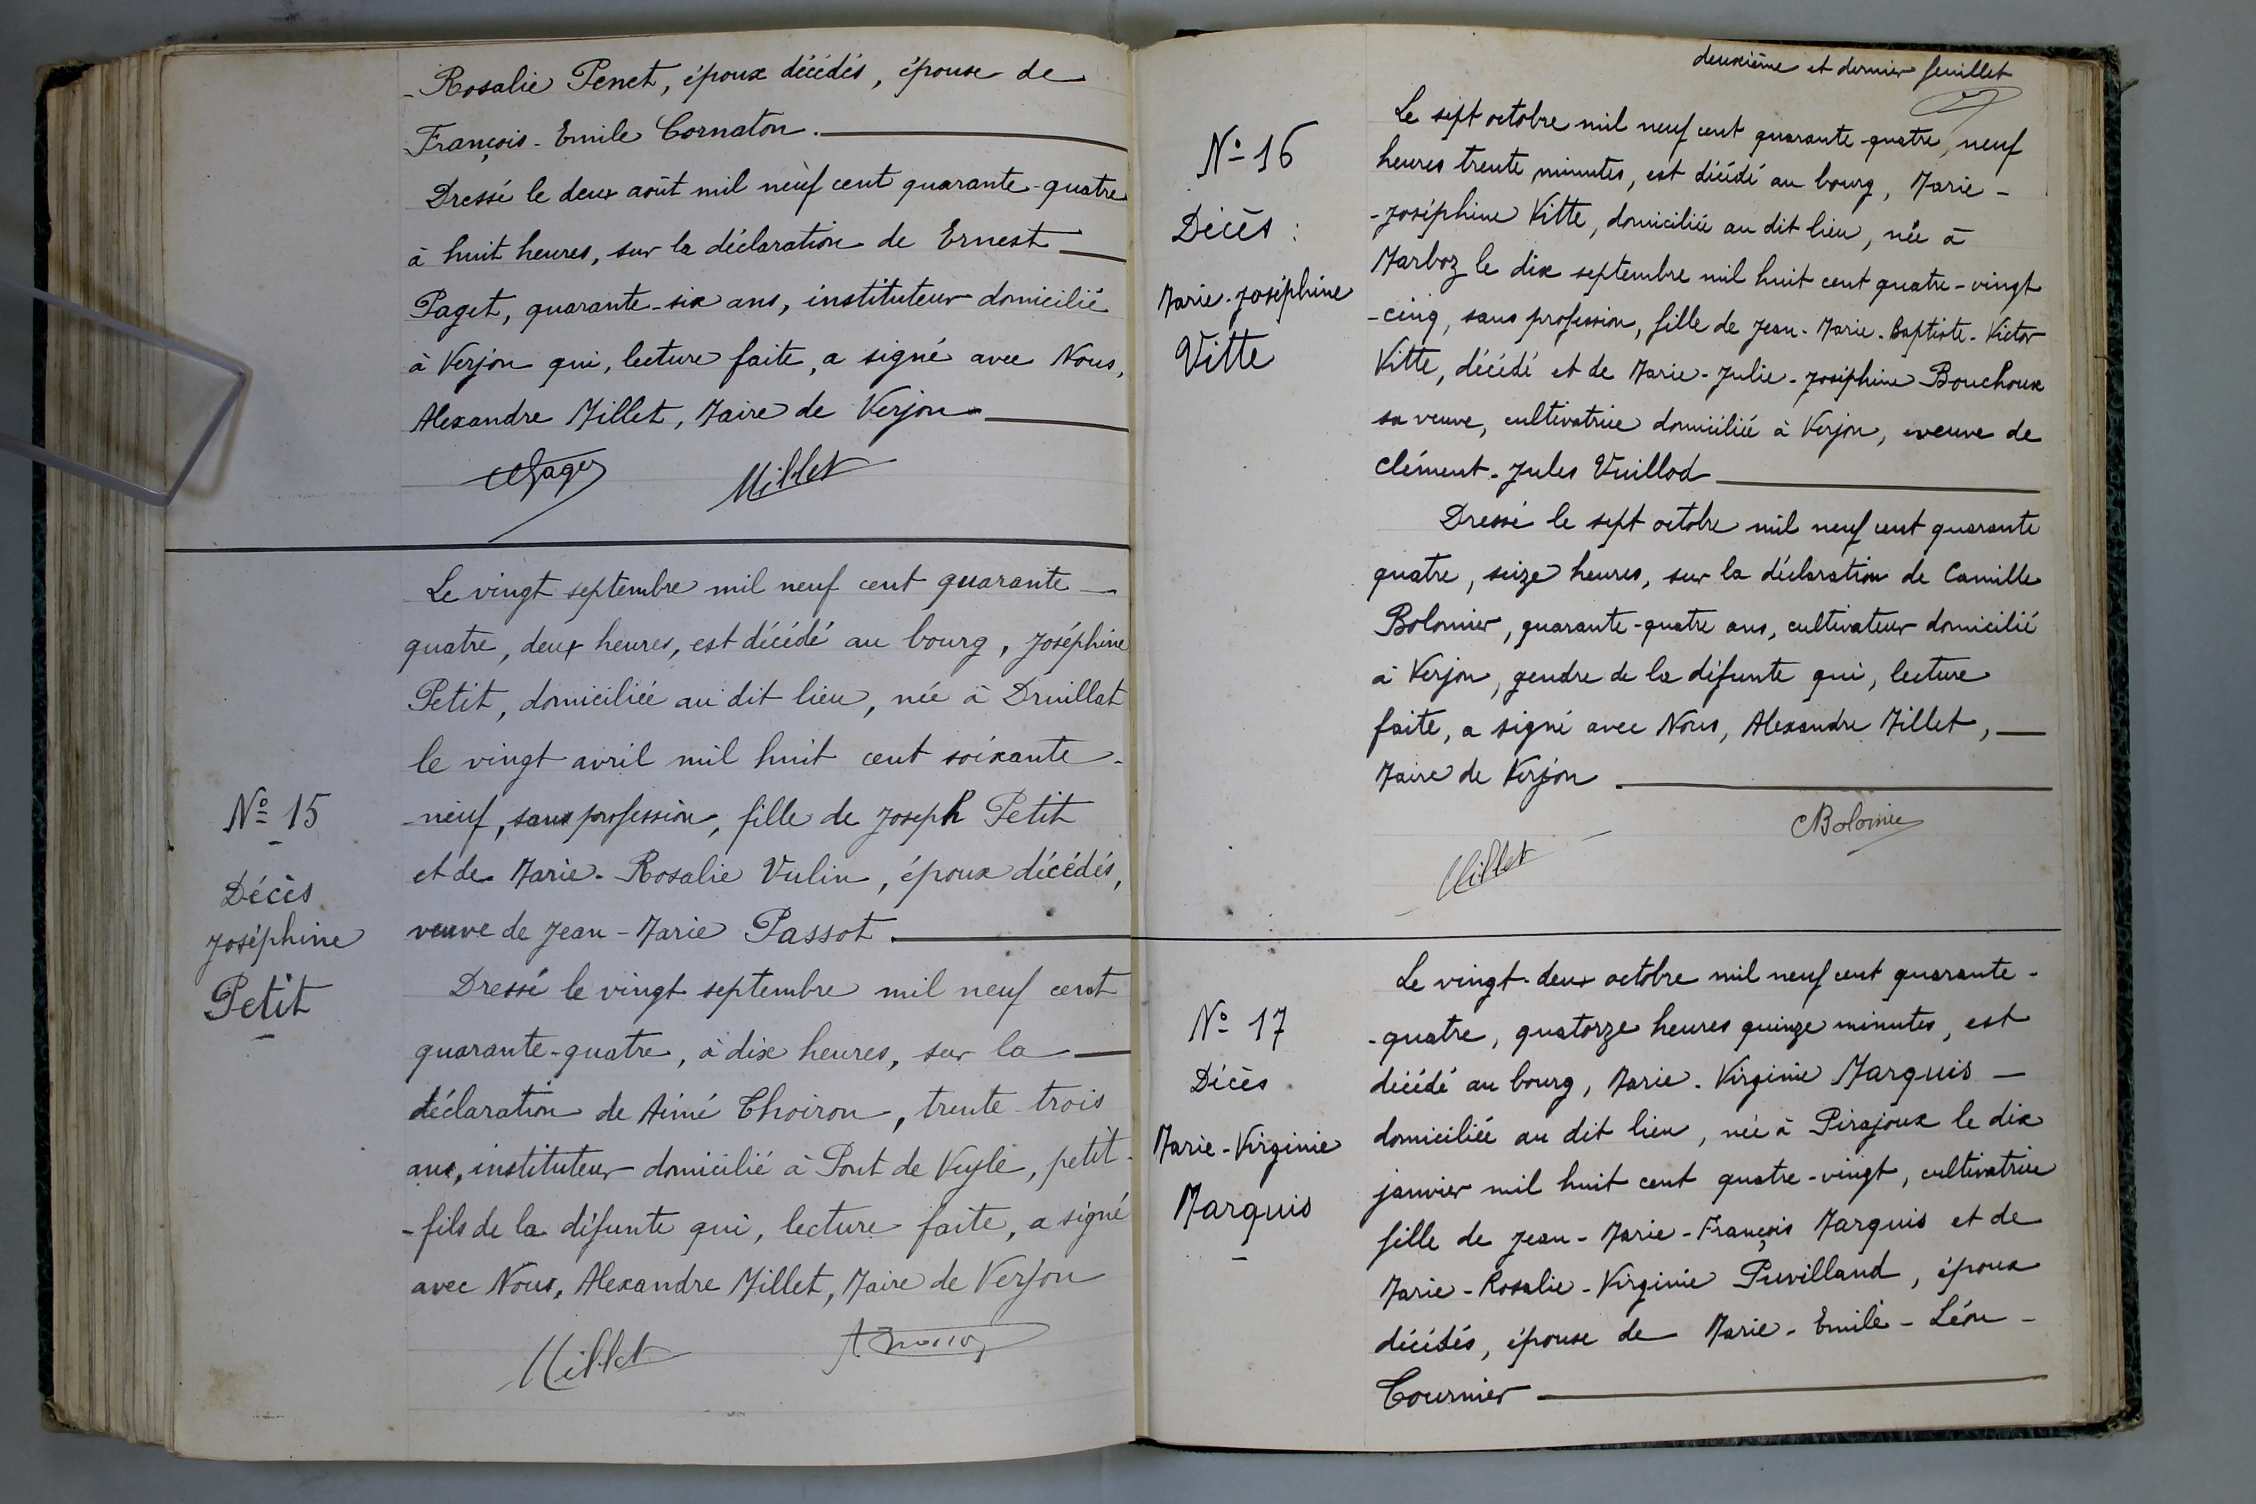 Rosalie Penet, époux décédés, épouse de
François-Emile Cornaton.
Dressé le deux août mil neuf cent quarante-quatre
à huit heures, sur la déclaration de Ernest
Paget, quarante-six ans, instituteur domicilié
à Verjon qui, lecture faite, a signé avec Nous,
Alexandre Millet, Maire de Verjon
Millet
Le vingt septembre mil neuf cent quarante
quatre, deux heures, est décédé au bourg, Joséphine
Petit, domiciliée au dit lieu, née à Druillat
le vingt avril mil huit cent soixante-
neuf, sans profession, fille de Joseph Petit
et de Marie-Rosalie Vulin, époux décédés,
veuve de Jean-Marie Passot.
Dressé le vingt septembre mil neuf cent
quarante-quatre, à dix heures, sur la
déclaration de Aimé Thoiron, trente-trois
ans, instituteur domicilié à Pont de Veyle, petit-
-fils de la défunte qui, lecture faite, a signé
avec Nous, Alexandre Millet, Maire de Verjon
Millet
No 15
Décès
Joséphine
Petit
deuxième et dernier feuillet
No 16
Décès :
Marie-Joséphine
Vitte
Le sept octobre mil neuf cent quarante-quatre, neuf
heures trente minutes, est décédé au bourg, Marie-
-Joséphine Vitte, domiciliée au dit lieu, née à
Marboz le dix septembre mil huit cent quatre-vingt
-cinq, sans profession, fille de Jean-Marie-Baptiste-Victor
Vitte, décédé et de Marie-Julie-Joséphine Bouchoux
sa veuve, cultivatrice domiciliée à Verjon, veuve de
Clément-Jules Vuillod
Dressé le sept octobre mil neuf cent quarante
quatre, seize heures, sur la déclaration de Camille
Bolomier, quarante-quatre ans, cultivateur domicilié
à Verjon, gendre de la défunte qui, lecture
faite, a signé avec Nous, Alexandre Millet,
Maire de Verjon.
CBolomier
Millet
No 17
Décès
Marie-Virginie
Marquis
Le vingt-deux octobre mil neuf cent quarante-
-quatre, quatorze heures quinze minutes, est
décédé au bourg, Marie-Virginie Marquis
domiciliée au dit lieu, née à Pirajoux le dix
janvier mil huit cent quatre-vingt, cultivatrice
fille de Jean-Marie-François Marquis et de
Marie-Rosalie-Virginie Puvilland, époux
décédés, épouse de Marie-Emile-Léon-
Cournier